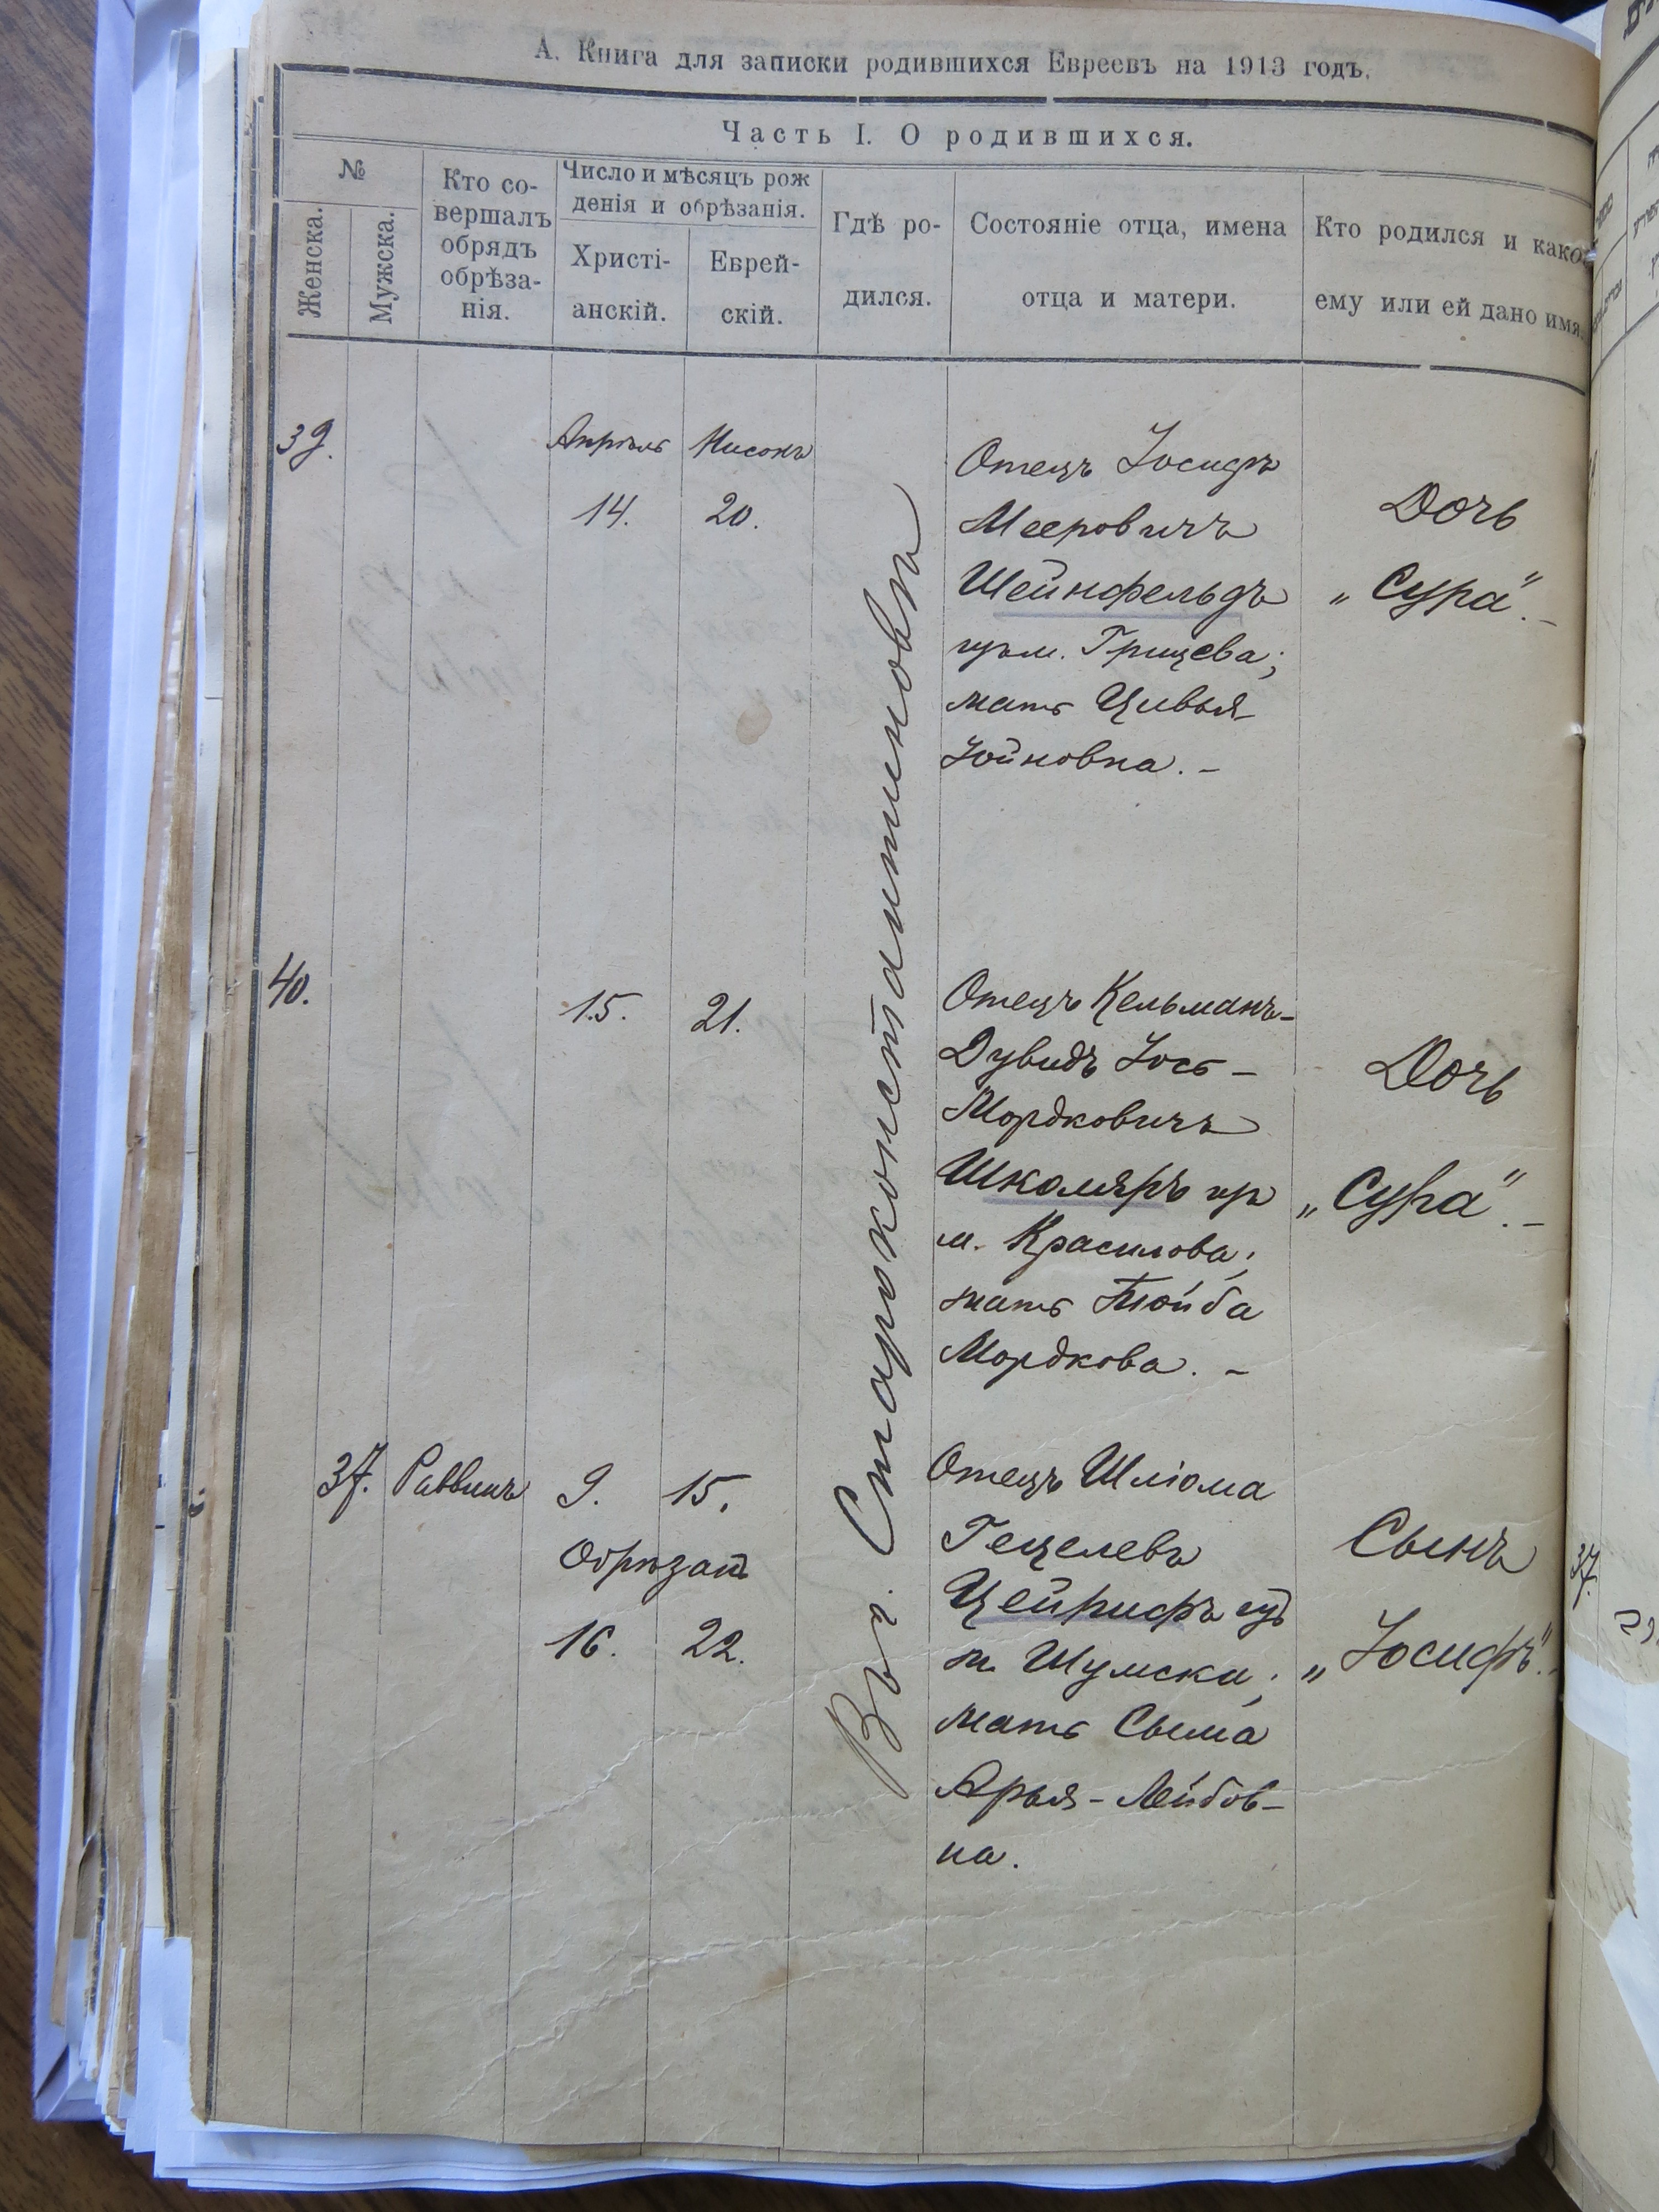 А. Книга для записки родившихся Евреевъ на 1913 годъ.
Часть I. О родившихся.
№
Женска.
Мужска.
Кто со-
вершалъ
обрядъ
обрѣза-
нія.
Число и мѣсяцъ рож
денія и обрѣзанія.
Христі-
анскій.
Еврей-
скій.
Гдѣ ро-
дился.
Состояніе отца, имена
отца и матери.
Кто родился и како
ему или ей дано имя.
39.
Апрѣль
14.
Нисонъ
20.
Въ г. Староконстантиновѣ
Отецъ Іосифъ
Мееровичъ
Шейнфельдъ
м. Грицева;
мать Цивья
Іойновна. –
Дочь
„Сура“. –
40.
15.
21.
Отецъ Кельманъ-
Дувидъ Іось –
Мордковичъ
Школяръ
м. Красилова;
мать Тойба
Мордкова. –
Дочь
„Сура“. –
37.
Раввинъ
9.
15.
Обрѣзан
16.
22.
Отецъ Шліома
Гецелевъ
Цейрифъ
м. Шумска;
мать Сыма
Арья-Лейбов-
на.
Сынъ
„Іосифъ“. –
37.